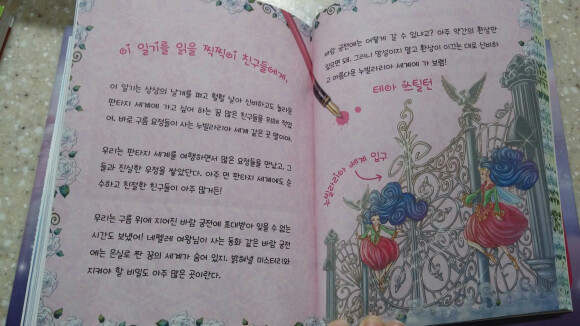 이 일기를 읽을 찍찍이 친구들에게,
이 일기는 상상의 날개를 펴고 훨훨 날아 신비하고도 놀라운
판타지 세계에 가고 싶어 하는 꿈 많은 친구들을 위해 적었
어. 바로 구름 요정들이 사는 누빌라리아 세계 같은 곳 말이야.
우리는 판타지 세계를 여행하면서 많은 요정들을 만났고, 그
들과 진실한 우정을 쌓았단다. 아주 먼 판타지 세계에도 순
수하고 친절한 친구들이 아주 많거든!
우리는 구름 위에 지어진 바람 궁전에 초대받아 잊을 수 없는
시간도 보냈어! 네펠레 여왕님이 사는 동화 같은 바람 궁전
에는 은실로 짠 꿈의 세계가 숨어 있지. 밝혀낼 미스터리와
지켜야 할 비밀도 아주 많은 곳이란다.
바람 궁전에는 어떻게 갈 수 있냐고? 아주 약간의 환상만
있으면 돼. 그러니 망설이지 말고 환상이 이끄는 대로 신비하
고 아름다운 누빌라리아 세계에 가 보렴!
테아 스틸턴
누빌라리아 세계 입구